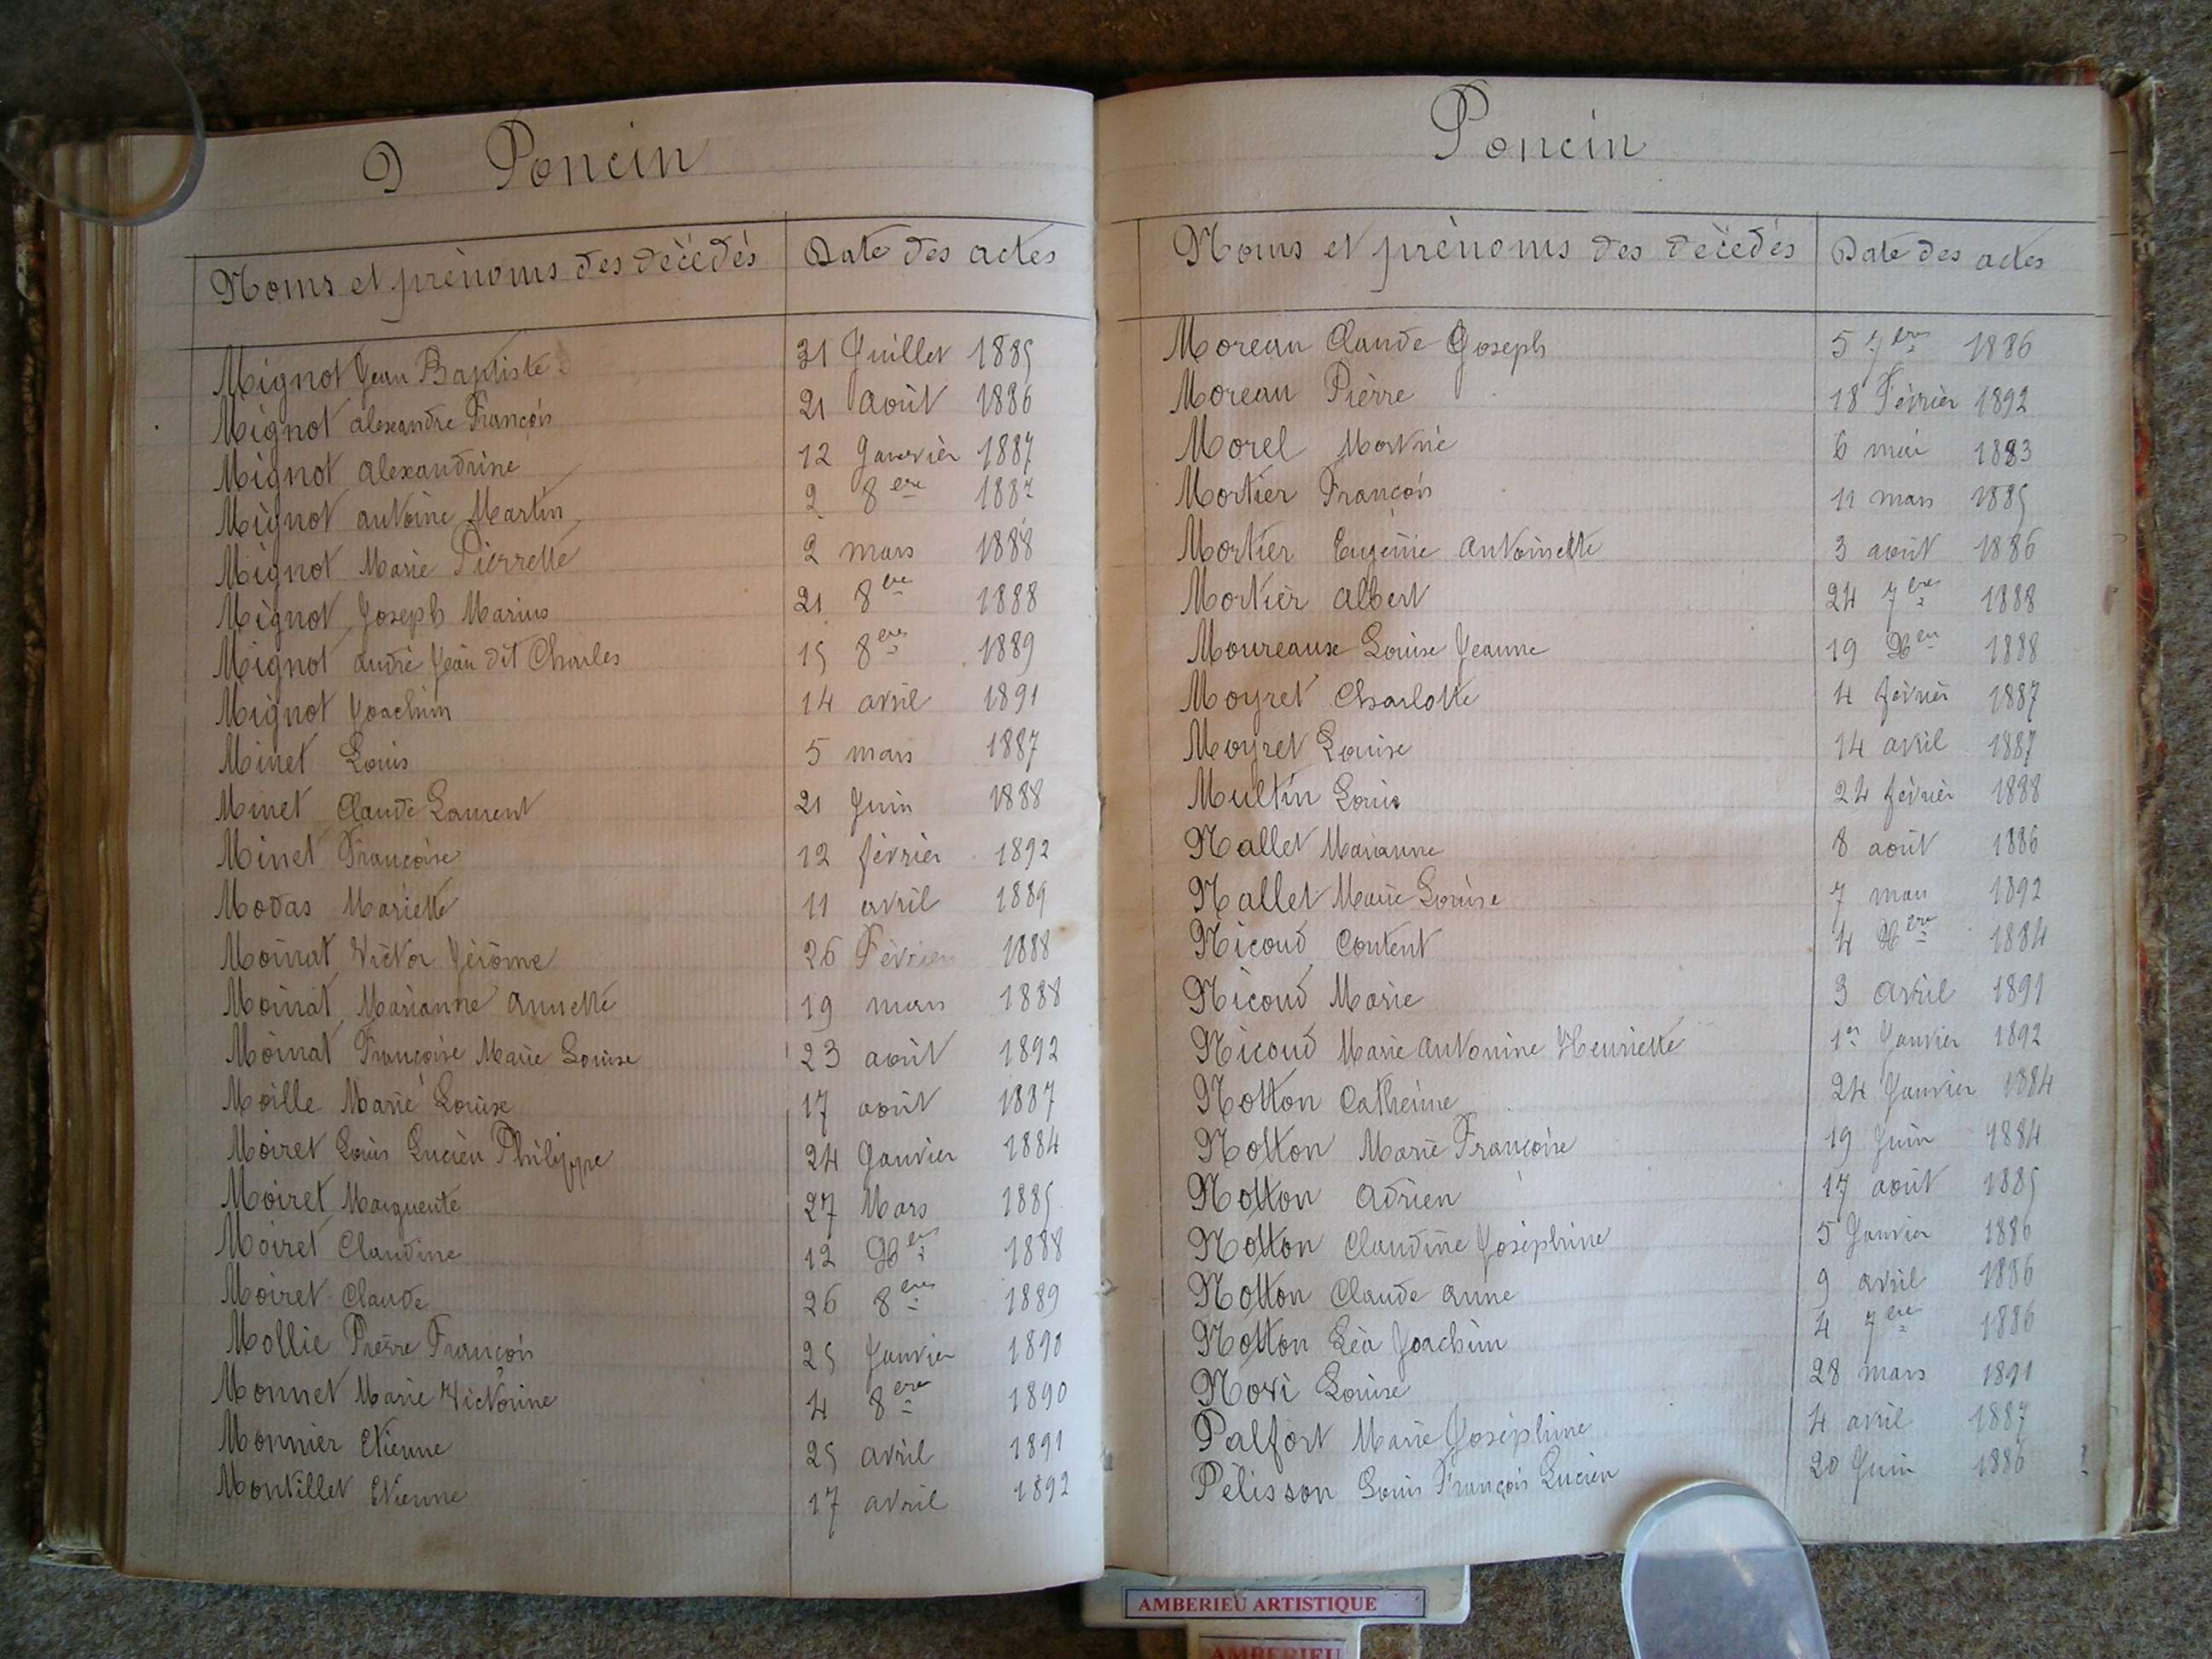 D Poncin
Noms et prénoms des décédés Date des actes
Mignot Jean Baptiste 31 Juillet 1885
Mignot alexandre François 21 août 1886
Mignot alexandrine 12 Janvier 1887
Mignot antoine Martin 2 8ere 1887
Mignot Marie Pierrette 2 mars 1888
Mignot Joseph Marius 21 8bre 1888
Mignot andré Jean dit Charles 15 8ere 1889
Mignot Joachim 14 avril 1891
Minet Louis 5 mars 1887
Minet Claude Laurent 21 Juin 1888
Minet Françoise 12 février 1892
Modas Mariette 11 avril 1889
Moinat Victor Jérôme 26 Février 1888
Moinat Marianne annette 19 mars 1888
Moinat Françoise Marie Louise 23 août 1892
Moille Marie Louise 17 août 1887
Moiret Louis Lucien Philippe 24 Janvier 1884
Moiret Marguerite 27 Mars 1885
Moiret Claudine 12 Xbre 1888
Moiret Claude 26 8ere 1889
Mollie Pierre François 25 Janvier 1890
Monnet Marie Victorine 4 8ere 1890
Monnier Etienne 25 avril 1891
Montillet Etienne 17 avril 1892
Poncin
Noms et prénoms des décédés Date des actes
Moreau Claude Joseph 5 7bre 1886
Moreau Pierre 18 Février 1892
Morel 6 mai 1883
Mortier François 11 mars 1885
Mortier Eugénie antoinette 3 août 1886
Mortier albert 24 7bre 1888
Moureaux Louise Jeanne 19 Xbre 1888
Moyret Charlotte 4 février 1887
Moyret Louise 14 avril 1887
Multin Louis 24 février 1888
Nallet Marianne 8 août 1886
Nallet Marie Louise 7 mars 1892
Nicoud Content 4 Xbre 1884
Nicoud Marie 3 avril 1891
Nicoud Marie antonine Henriette 1er Janvier 1892
Notton Catherine 24 Janvier 1884
Notton Marie Françoise 19 Juin 1884
Notton adrien 17 août 1885
Notton Claudine Joséphine 5 Janvier 1886
Notton Claude anne 9 avril 1886
Notton Léa Joachim 4 7ere 1886
Novi Louise 28 mars 1891
Palfort Marie Joséphine 4 avril 1887
Pélisson Louis François Lucien 20 Juin 1886
AMBERIEU ARTISTIQUE
AMBERIEU